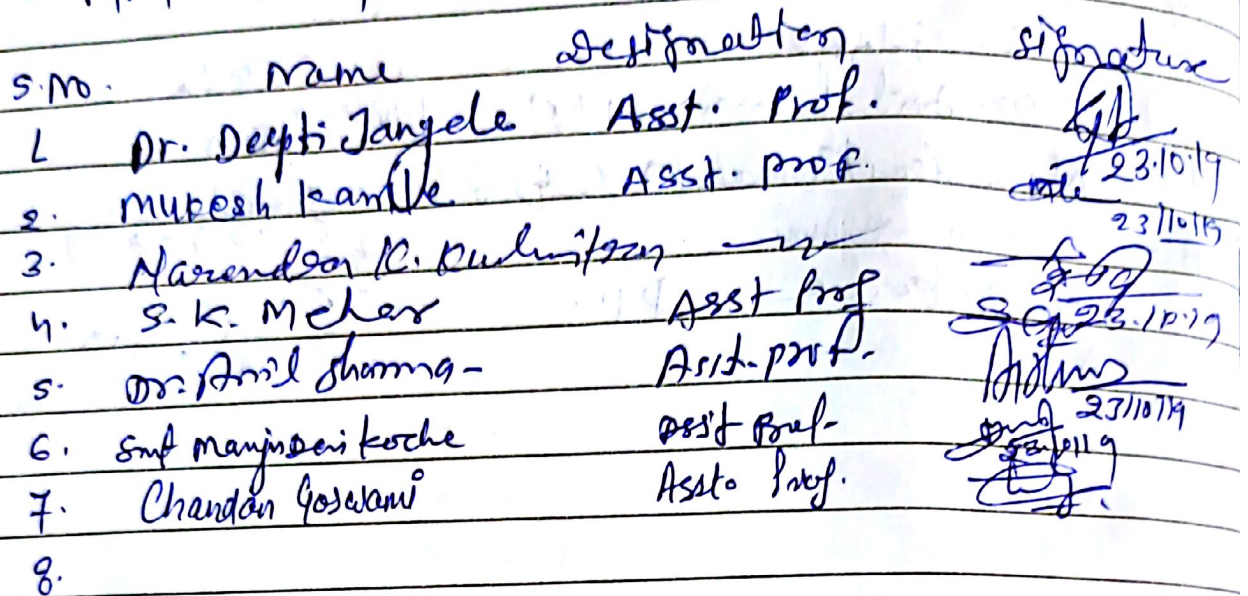 S.No. Name Designation Signature
1 Dr. Deepti Jangele Asst. Prof. 23.10.19
2. Mukesh Kamble Asst. prof. 23/10/19
3. Narendra K.
4. S. K. Meher Asst Prof 23.10.19
5. Dr. Anil Sharma - Asst. prof. 23/10/19
6. Smt Manju Devi Koche Asst Prof -
7. Chandan Goswami Asst. Prof.
8.